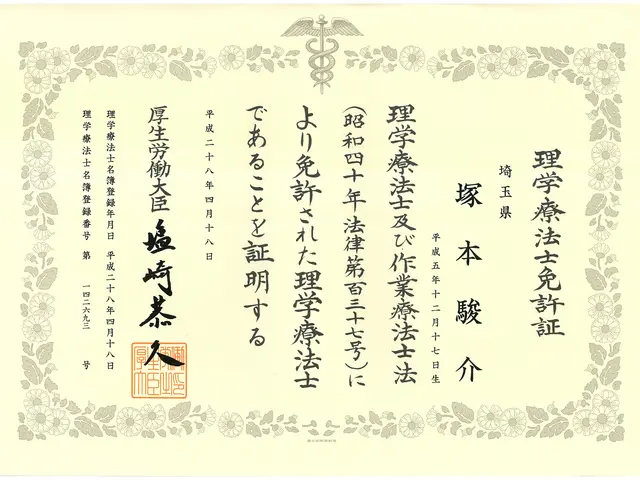 理学療法士免許証
埼玉県
塚本駿介
平成五年十二月十七日生
理学療法士及び作業療法士法
（昭和四十年法律第百三十七号）に
より免許された理学療法士
であることを証明する
平成二十八年四月十八日
厚生労働大臣 塩崎恭久
理学療法士名簿登録年月日 平成二十八年四月十八日
理学療法士名簿登録番号 第 一四二六九三 号